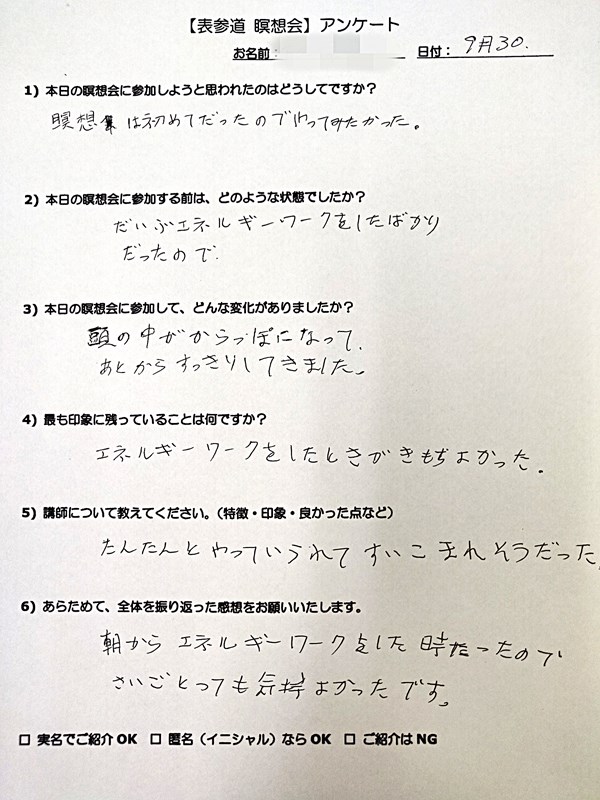 【表参道 瞑想会】アンケート
お名前: 日付: 9月30.
1) 本日の瞑想会に参加しようと思われたのはどうしてですか?
瞑想 は初めてだったのでやってみたかった。
2) 本日の瞑想会に参加する前は、どのような状態でしたか?
だいぶエネルギーワークをしたばかり
だったので.
3) 本日の瞑想会に参加して、どんな変化がありましたか?
頭の中がからっぽになって.
あとからすっきりしてきました。
4) 最も印象に残っていることは何ですか?
エネルギーワークをしたときがきもぢよかった.
5) 講師について教えてください。(特徴・印象・良かった点など)
たんたんとやっていられてすいこまれそうだった
6) あらためて、全体を振り返った感想をお願いいたします。
朝からエネルギーワークをした時だったので
さいごとっても気持よかったです。
□ 実名でご紹介OK □ 匿名(イニシャル)ならOK □ ご紹介はNG